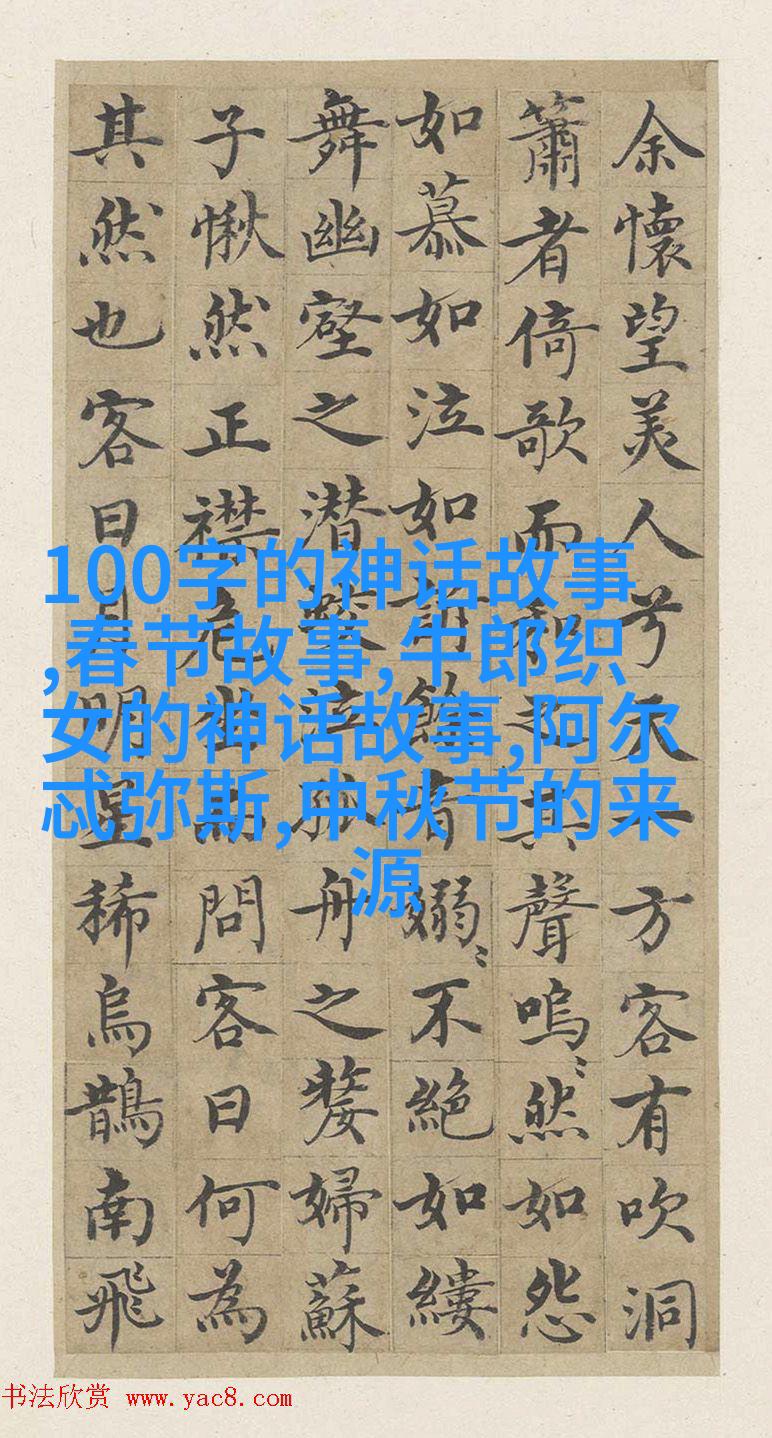 余懷望美人兮天一方客有吹洞
簫者倚歌而和之其聲嗚〻然如怨
如慕如泣如訴餘音嫋〻不絕如縷
舞幽壑之潜蛟泣孤舟之嫠婦蘇
子愀然正襟危坐而問客曰何為
其然也客曰月明星稀烏鵲南飛
100字的神话故事
,春节故事,牛郎织
女的神话故事,阿尔
忒弥斯,中秋节的来
源
书法欣赏 www.yac8.com